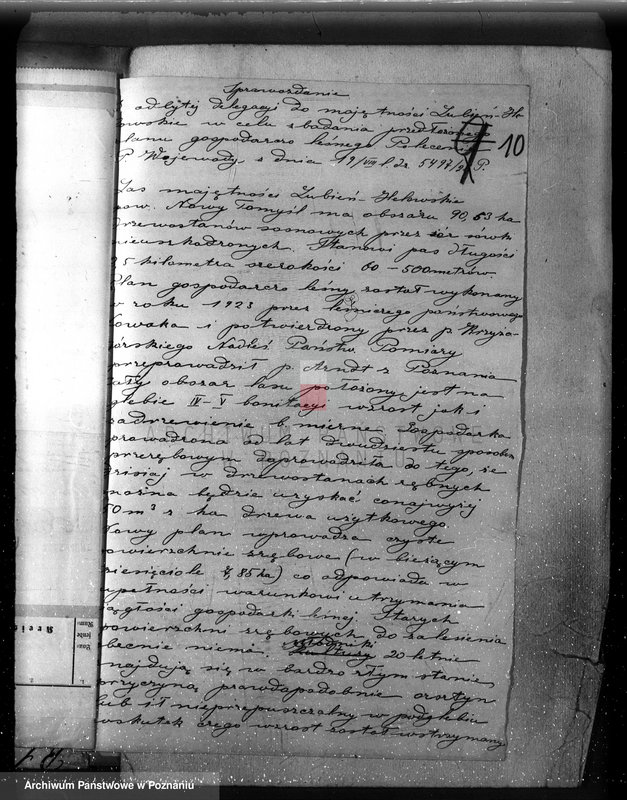 Sprawozdanie
z odbytej delegacyi do majętności Lubień-He
kowskie w celu zbadania przedłożonego
planu gospodarczo leśnego Polecenie
P Wojewody z dnia 19/VIII l. dz. 5497/ P.
10
Las majętności Lubień-
pow. Nowy Tomyśl ma obszaru 90,53 ha
drzewostanów sosnowych przez żór sówki
nieuszkodzonych. Stanowi pas długości
kilometra szerokości 60-500 metrów.
Plan gospodarczo leśny został wykonany
w roku 1923 przez leśniczego państwowego
Nowaka i potwierdzony przez p. Krzyża-
nórskiego Nadleś Państw. Pomiary
przeprowadził p. Arndt z Poznania
Cały obszar lasu położony jest na
glebie IV-V bonitacyi wzrost jak i
zadrzewienie b. mierne. Gospodarka
prowadzona od lat dwudziestu sposobem
przerębowym doprowadziła do tego, że
dzisiaj w drzewostanach rębnych
można będzie uzyskać conajwyżej
50 m³ z ha drzewa użytkowego.
Nowy plan wprowadza czyste
powierzchnie zrębowe (w bieżącym
dziesięciole 85 ha) co odpowiada w
zupełności warunkowi utrzymania
ciągłości gospodarki leśnej. Starych
powierzchni zrębowych do zalesienia
obecnie niema. 20 letnie
znajdują się w bardzo złym stanie,
przyczyną prawdopodobnie orsztyn
lub ił nieprzepuszczalny w podglebiu
wskutek czego wzrost został wstrzymany
ARCHIWUM PAŃSTWOWE
W POZNANIU
Archiwum Państwowe w Poznaniu